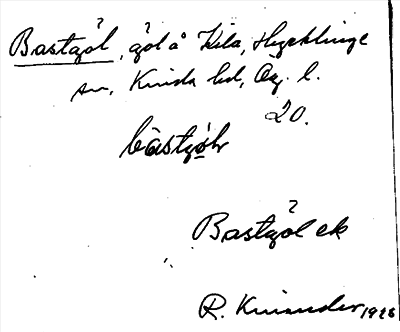 Bastgöl, göl å Kila, Hycklinge
sn, Kinda hd, Ög. l.
20.
bàstjö̀ḷr
Bastgöl ek
R. Kinander 1928